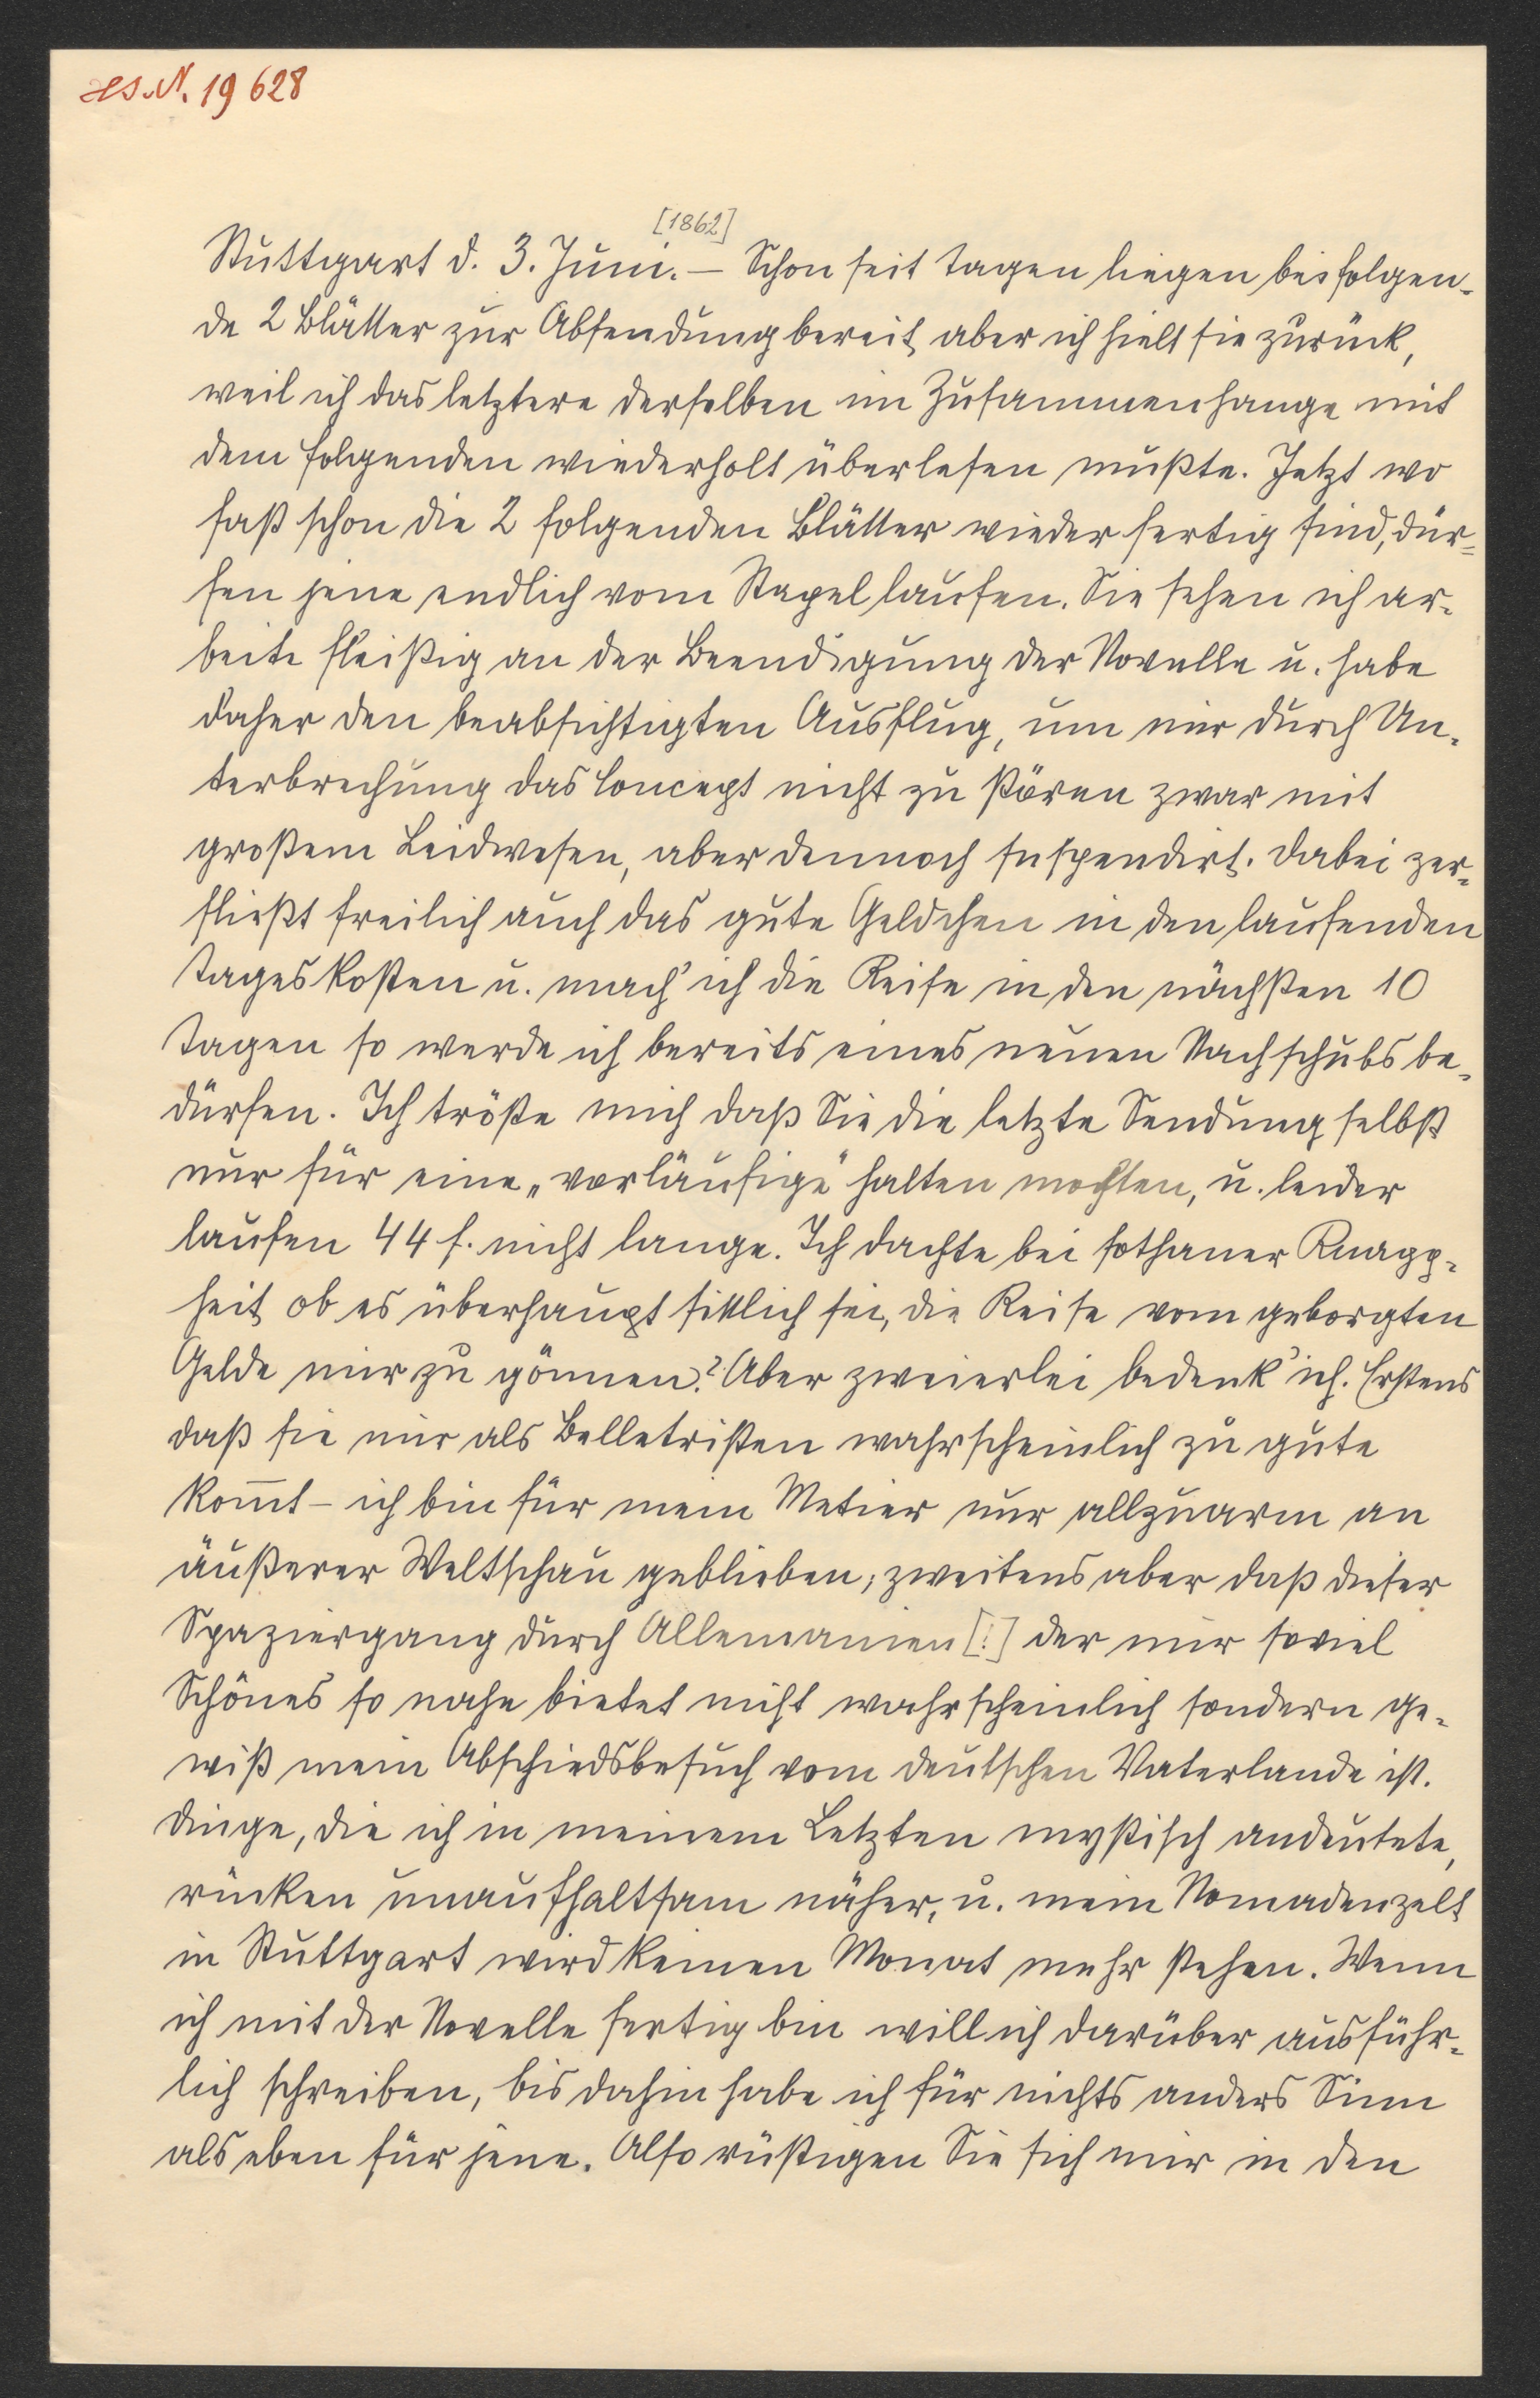 Hs. N. 19 628
[1862]
Stuttgart d. 3. Juni. – Schon seit Tagen liegen beifolgen-
de 2 Blätter zur Absendung bereit, aber ich hielt sie zurück,
weil ich das letztere derselben im Zusammenhange mit
dem Folgenden wiederholt überlesen mußte. Jetzt wo
fast schon die 2 folgenden Blätter wieder fertig sind, dür-
fen jene endlich vom Stapel laufen. Sie sehen ich ar-
beite fleißig an der Beendigung der Novelle u. habe
daher den beabsichtigten Ausflug, um mir durch Un-
terbrechung das Concept nicht zu stören zwar mit
großem Leidwesen, aber dennoch suspendirt. Dabei zer-
fließt freilich auch das gute Geldchen in den laufenden
Tageskosten u. mach' ich die Reise in den nächsten 10
Tagen so werde ich bereits eines neuen Nachschubs be-
dürfen. Ich tröste mich daß Sie die letzte Sendung selbst
nur für eine „vorläufige“ halten mochten, u. leider
laufen 44 f. nicht lange. Ich dachte bei sothaner Knapp-
heit ob es überhaupt sittlich sei, die Reise vom geborgten
Gelde mir zu gönnen? Aber zweierlei bedenk' ich. Erstens
daß sie mir als Belletristen wahrscheinlich zu gute
kom̄t – ich bin für mein Metier nur allzuarm an
äußerer Weltschau geblieben; zweitens aber daß dieser
Spaziergang durch Allemanien [!] der mir soviel
Schönes so nahe bietet nicht wahrscheinlich sondern ge-
wiß mein Abschiedsbesuch vom deutschen Vaterlande ist.
Dinge, die ich in meinem Letzten mystisch andeutete,
rücken unaufhaltsam näher, u. mein Nomadenzelt
in Stuttgart wird keinen Monat mehr stehen. Wenn
ich mit der Novelle fertig bin will ich darüber ausführ-
lich schreiben, bis dahin habe ich für nichts anders Sinn
als eben für jene. Also rüstigen Sie sich mir in den